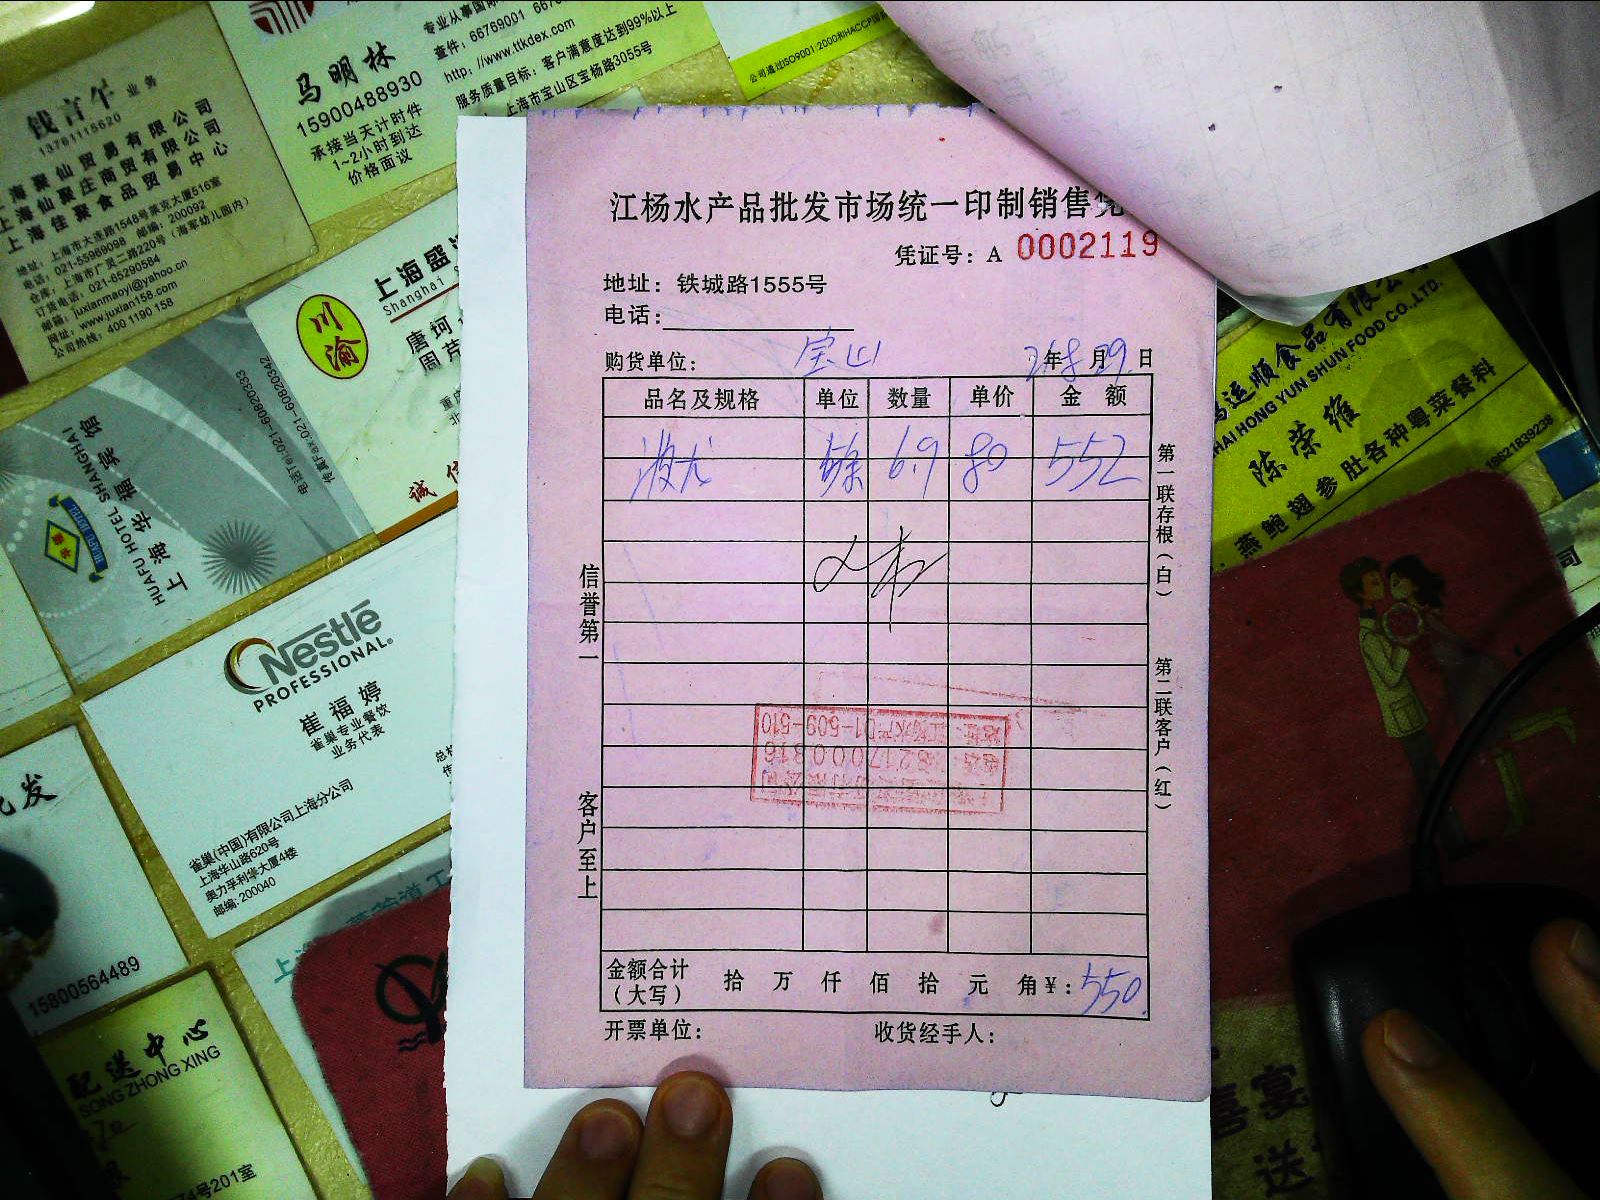 江杨水产品批发市场统一印制销售凭
凭证号: A 0002119
地址: 铁城路1555号
电话:
购货单位: 宝山 年8月29日
品名及规格 单位 数量 单价 金额
波龙 6.9 80 552
金额合计 拾 万 仟 佰 拾 元 角 ¥: 550
(大写)
开票单位: 收货经手人:
信誉第一
客户至上
第一联存根(白)
第二联客户(红)
钱言午 业务
13761115620
海聚仙贸易有限公司
上海仙聚庄商贸有限公司
上海佳聚食品贸易中心
地址: 上海市大连路1548号莱克大厦516室
电话: 021-55969098 邮编: 200092
仓库: 上海市广灵二路220号 (海军幼儿园内)
订货电话: 021-65290584
邮箱: juxianmaoyi@yahoo.cn
网址: www.juxian158.com
公司热线: 400 1190 158
马明林
15900488930
承接当天计时件
1~2小时到达
价格面议
专业从事国际
查件: 66769001
http://www.ttkdex.com
服务质量目标: 客户满意度达到99%以上
上海市宝山区宝杨路3055号
公司通过ISO9001:2000和HACCP国
川渝
上海盛
Shanghai
唐珂
周芹
诚信
上海华福宾馆
HUAFU HOTEL SHANGHAI
电话Tel:021-60820333
传真Fax:021-60820342
Nestlé
PROFESSIONAL.
崔福婷
雀巢专业餐饮
业务代表
雀巢(中国)有限公司上海分公司
上海华山路620号
奥力孚利华大厦4楼
邮编: 200040
15800564489
配送中心
SONG ZHONG XING
号201室
鸿运顺食品有限公
HAI HONG YUN SHUN FOOD CO.,LTD.
陈荣维
燕鲍翅参肚各种粤菜餐料
18621839238
喜宴
送